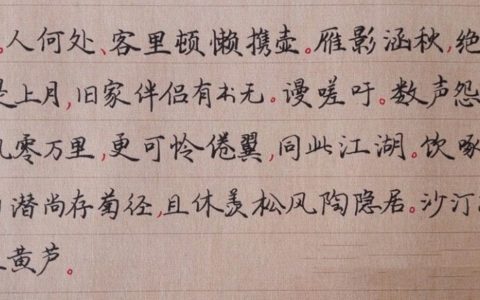 。人何处、客里顿懒携壶。雁影涵秋,绝
是上月,旧家伴侣有书无。谩嗟吁。数声怨
风零万里,更可怜倦翼,同此江湖。饮啄
潜尚存菊径,且休羡松风陶隐居。沙汀
黄芦。